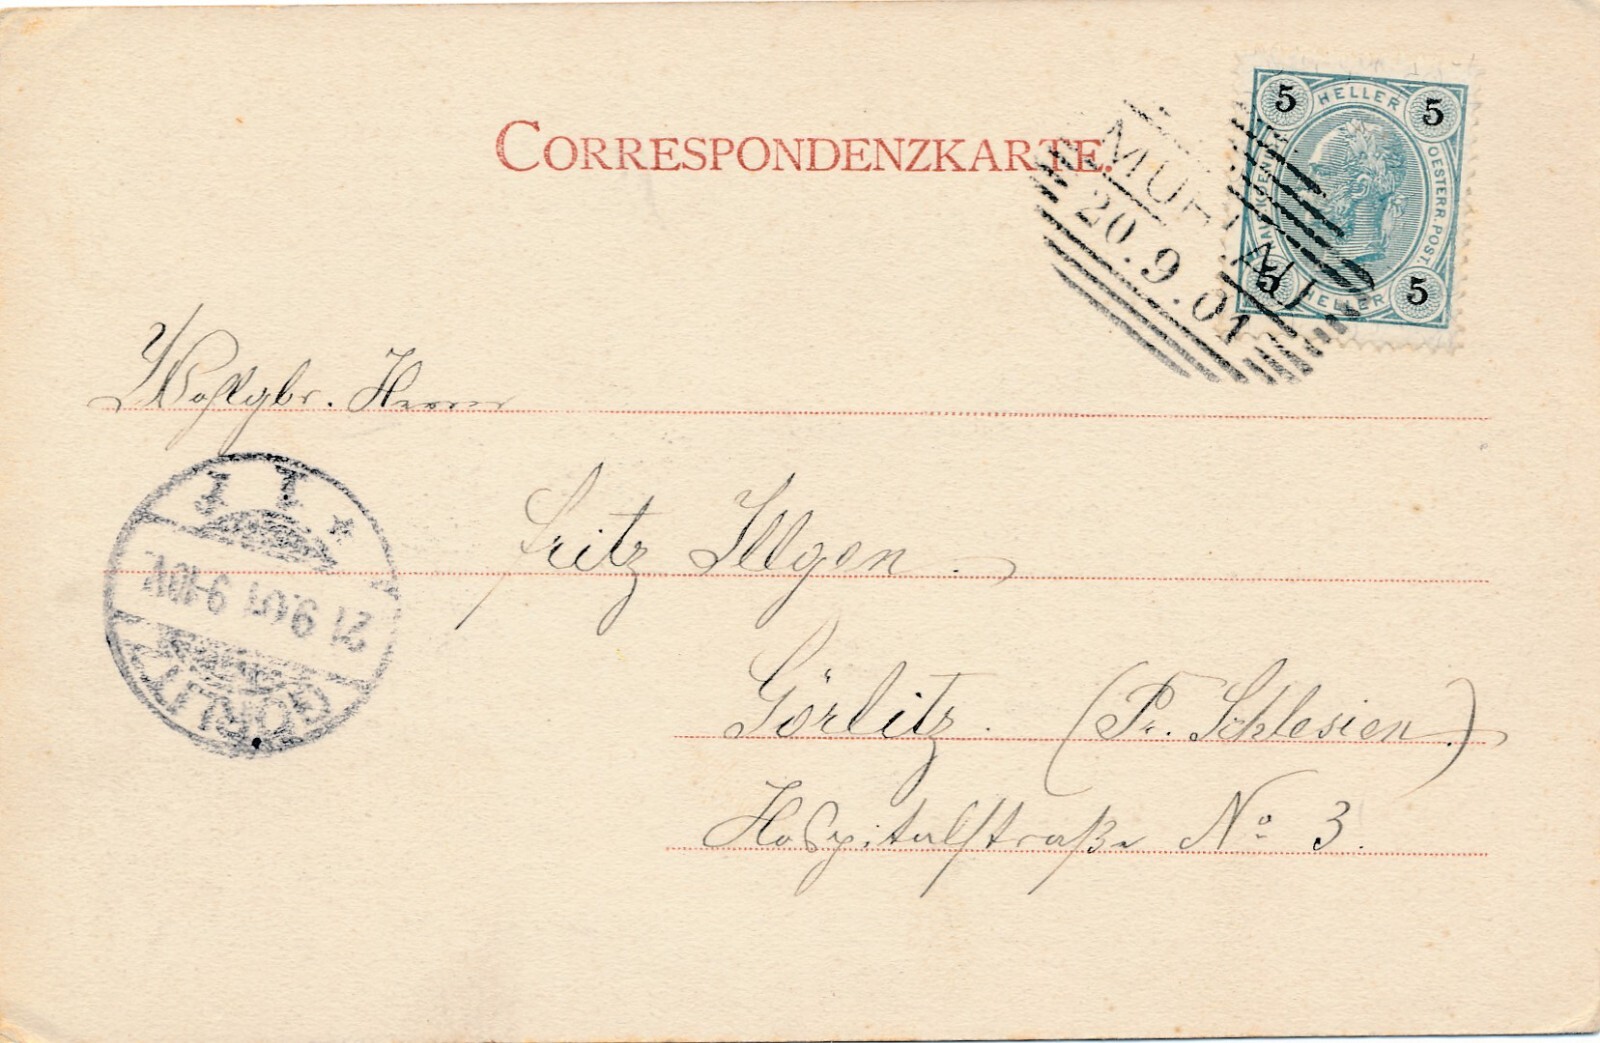 CORRESPONDENZKARTE.
5 HELLER 5
OESTERR. POST.
5 HELLER 5
20.9.01
Wohlgbr. Herrn
Fritz Illgen.
Görlitz. (Pr. Schlesien.)
Hospitalstraße No 3.
GÖRLITZ
21 9.01 9-10V.